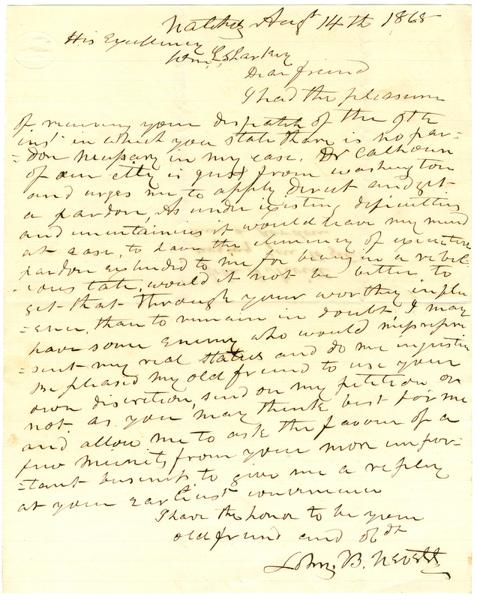 Natchez Augt 14th 1865
His Excellency
Wm L Sharkey
Dear friend
I had the pleasure
of receiving your dispatch of the 9th
inst in which you state there is no par-
-don necessary in my case. Dr Calhoun
of our city is just from Washington
and urges me to apply direct and get
a pardon, As under existing dificulties
and uncertainties it would leave my mind
at ease, to have the clemency of executive
pardon extended to me for being in a rebel-
-ious state, would it not be better, to
get that through your worthy influ-
-ence, than to remain in doubt, I may
have some enemy who would misrepre-
-sent my real status and do me injustice
Be pleased my old friend to use your
own discretion, send on my petition or
not. as you may think best for me
and allow me to ask the favour of a
few minits from your more impor-
-tant business to give me a reply
at your earliest convenience
I have the honor to be your
old friend and obdt
John B. Nevitt